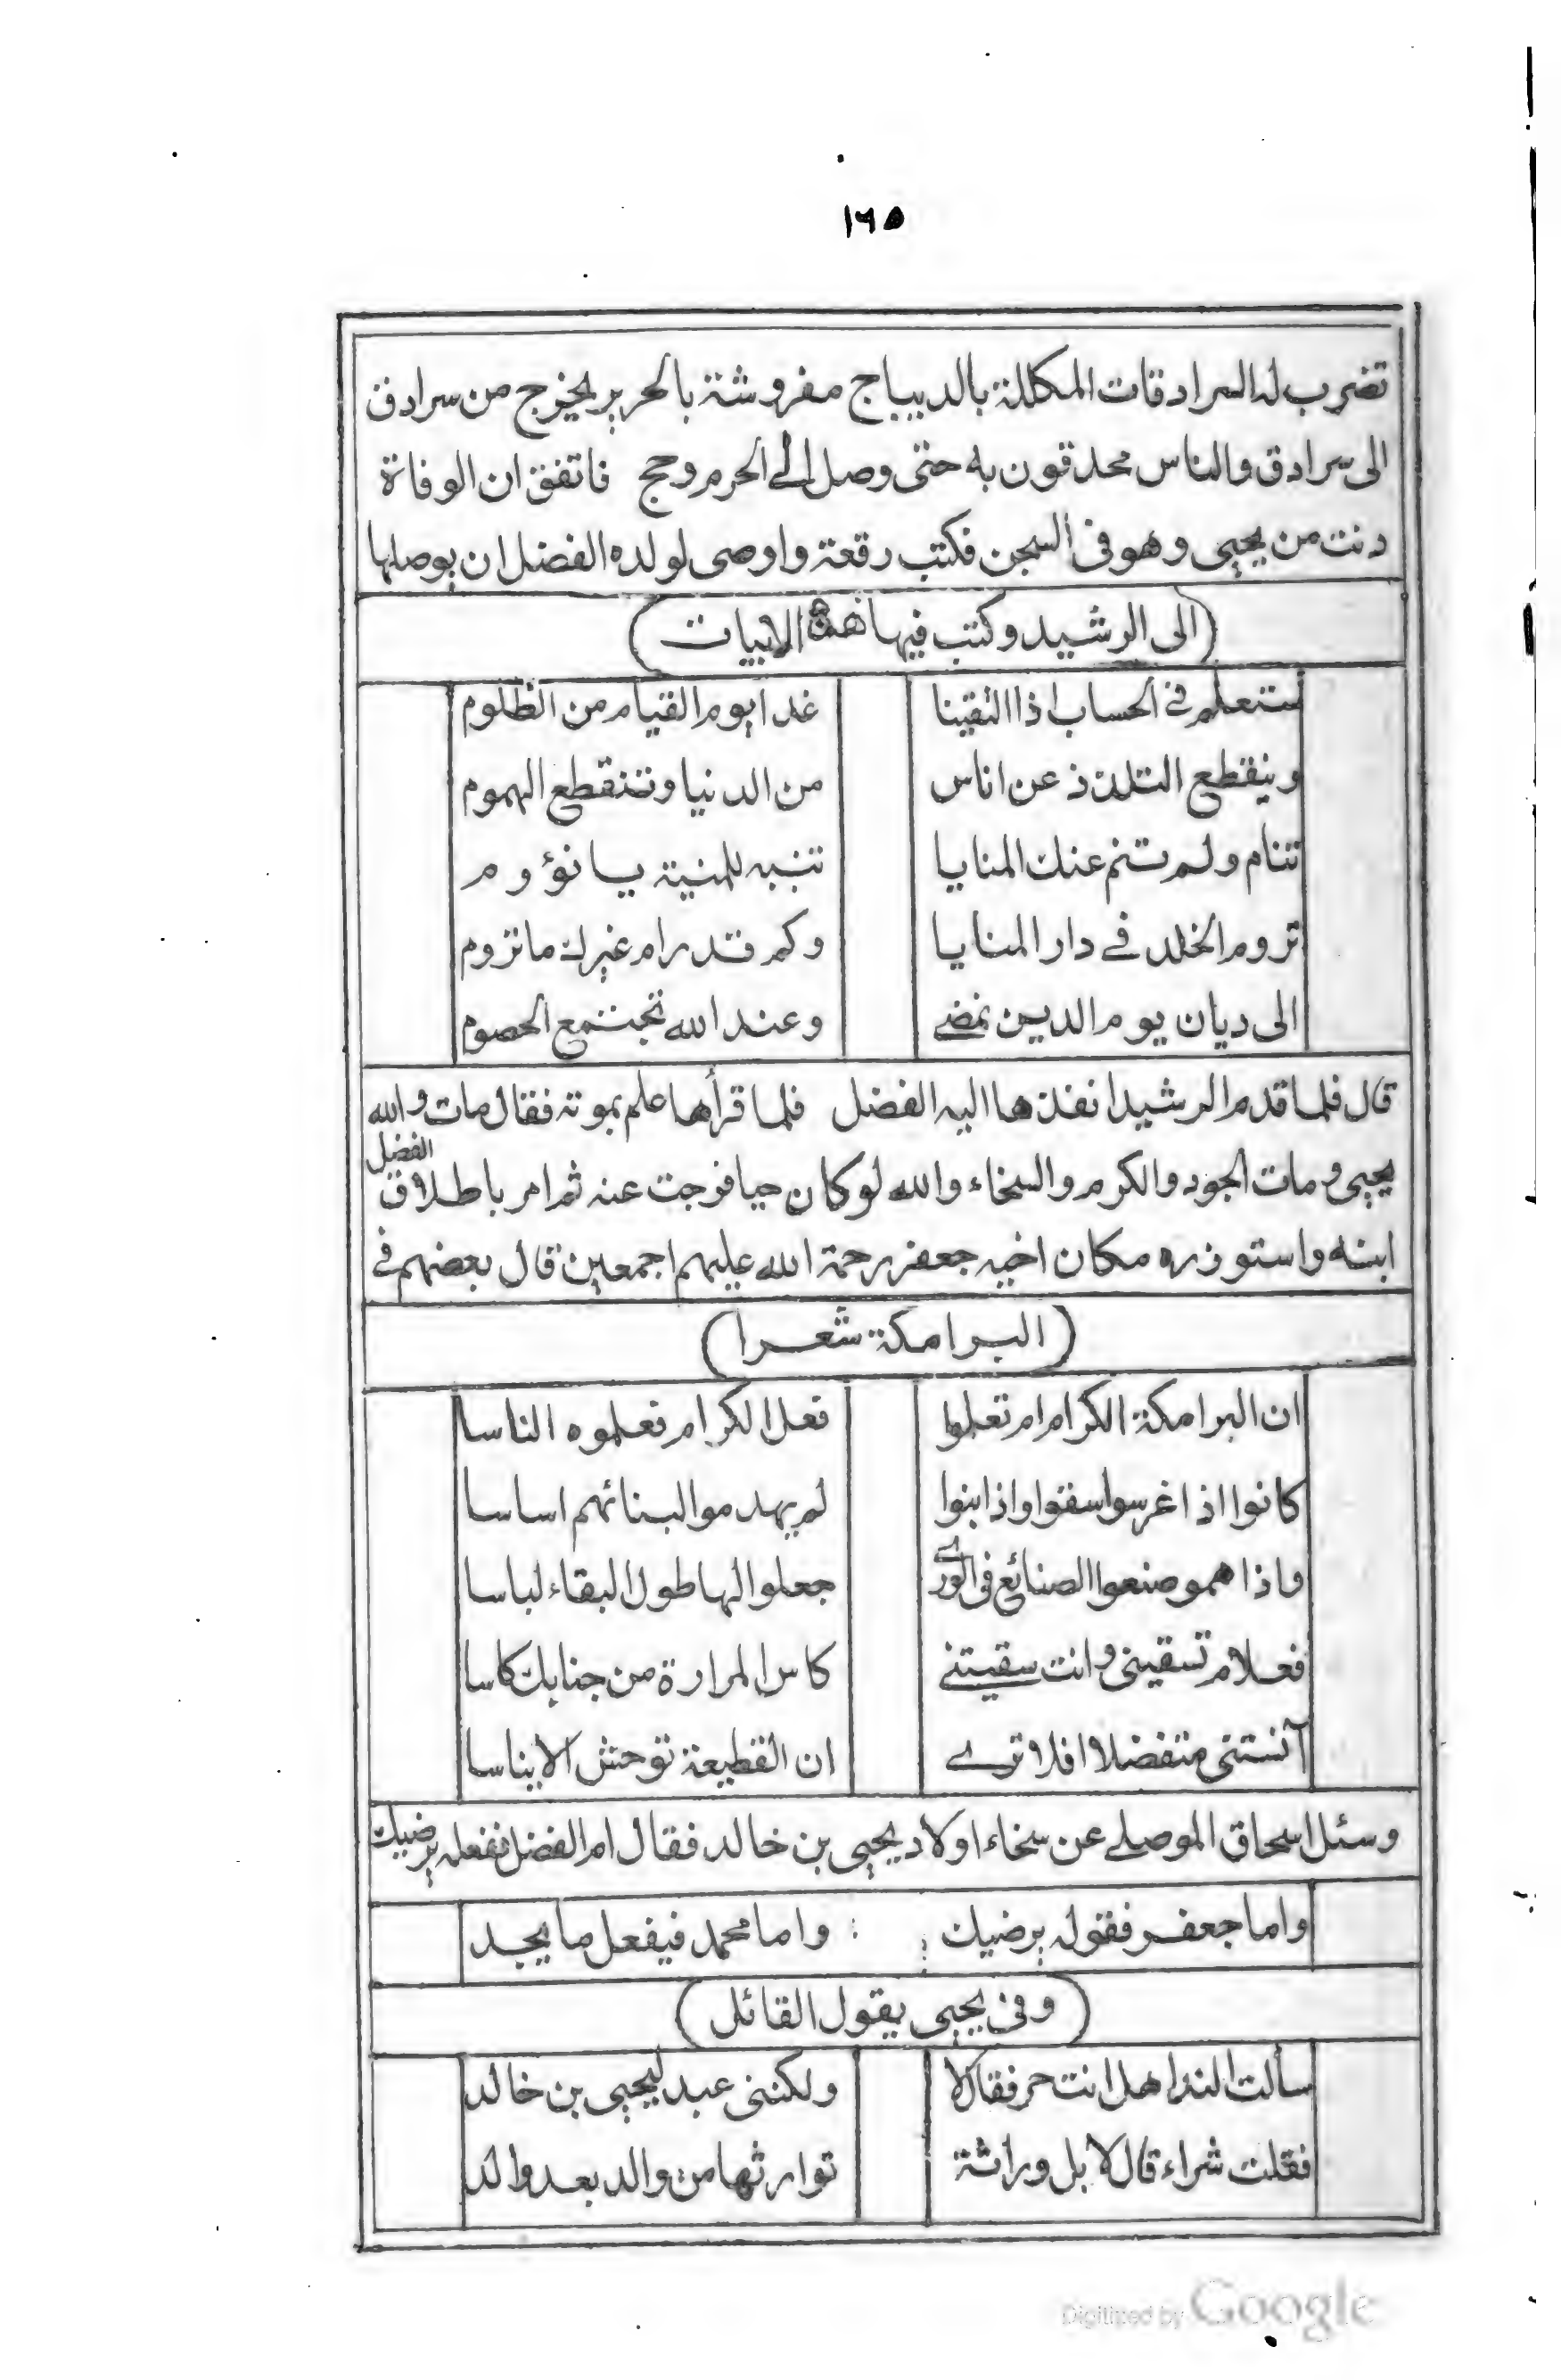 ١٦٥
تضرب له السرادقات المكللة بالديباج مفروشة بالحرير يخرج من سرادق
الى سرادق والناس محدقون به حتى وصل الى الحرم وحج فاتفق ان الوفاة
دنت من يحيى وهو فى السجن فكتب رقعة واوصى لولده الفضل ان يوصلها
(الى الرشيد وكتب فيها هذه الابيات)
ستعلم في الحساب اذا التقينا غدا يوم القيام من الظلوم
وينقطع التلذذ عن اناس من الدنيا وتنقطع الهموم
تنام ولم تنم عنك المنايا تنبه للمنية يا نؤوم
تروم الخلد في دار المنايا وكم قد رام غيرك ما تروم
الى ديان يوم الدين نمضي وعند الله تجتمع الخصوم
قال فلما قدم الرشيد انفذها اليه الفضل فلما قرأها علم بموته فقال مات والله
يحيى ومات الجود والكرم والسخاء والله لو كان حيا فرجت عنه ثم امر باطلاق الفضل
ابنه واستوزره مكان اخيه جعفر رحمة الله عليهم اجمعين قال بعضهم في
(البرامكة شعرا)
ان البرامكة الكرام تعلموا فعل الكرام فعلموه الناسا
كانوا اذا غرسوا سقوا واذا بنوا لم يهدموا لبنائهم اساسا
واذا همو صنعوا الصنائع فى الورى جعلوا لها طول البقاء لباسا
فعلام تسقينى وانت سقيتني كاس المرارة من جنابك كاسا
آنستنى متفضلا افلا ترى ان القطيعة توحش الايناسا
وسئل اسحاق الموصلي عن سخاء اولاد يحيى بن خالد فقال اما الفضل ففعله يرضيك
واما جعفر فقوله يرضيك : واما محمد فيفعل ما يجد
(وفى يحيى يقول القائل)
سألت الندا هل انت حر فقال لا ولكننى عبد ليحيى بن خالد
فقلت شراء قال لا بل وراثة توارثها من والد بعد والد
Digitized by Google